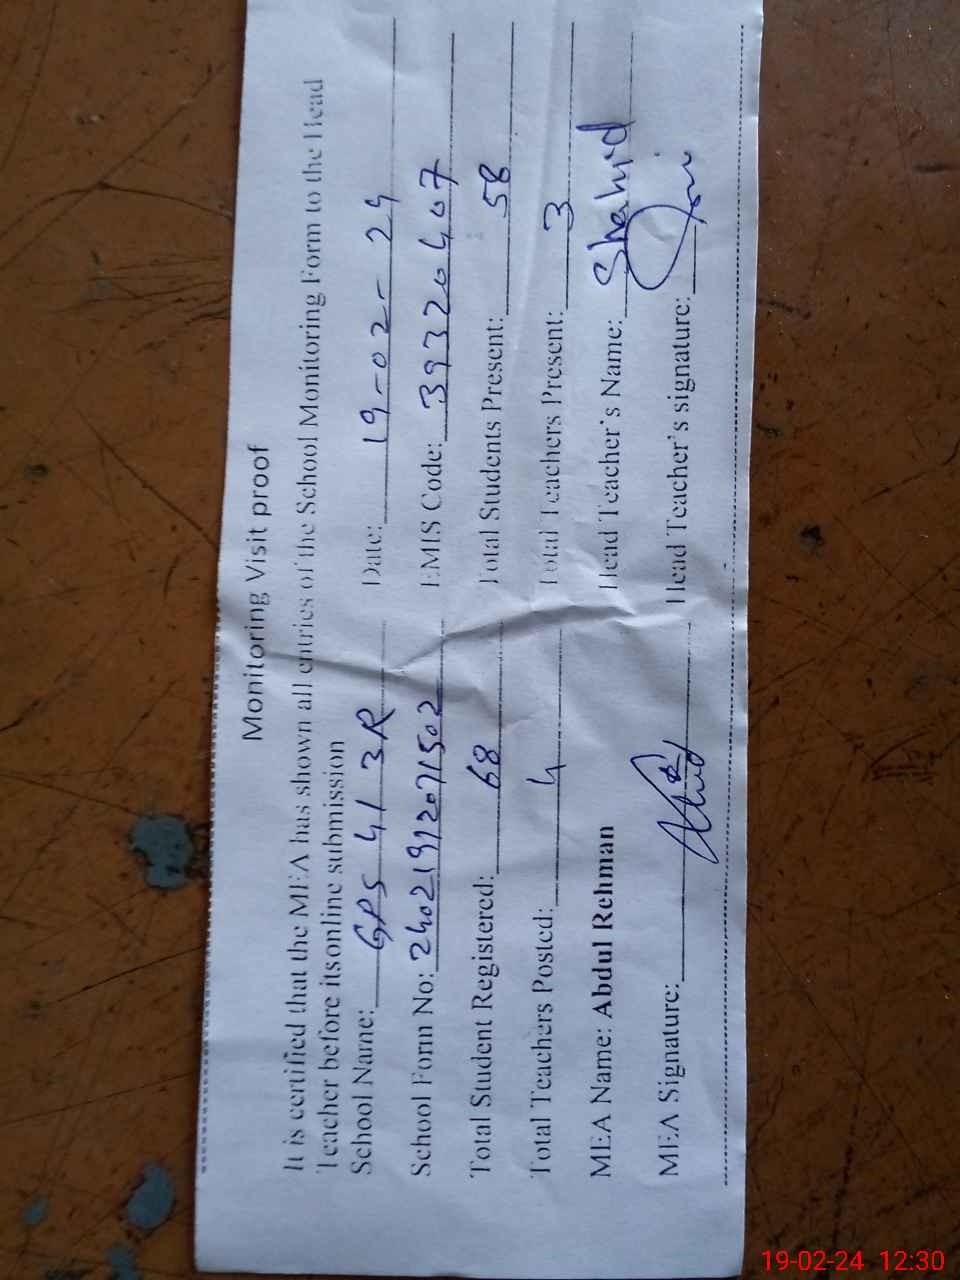 Monitoring Visit proof
It is certified that the MEA has shown all entries of the School Monitoring Form to the Head
Teacher before itsonline submission
School Name: GPS 41 3R Date: 19-02-24
School Form No: 24021992071502 EMIS Code: 39320407
Total Student Registered: 68 Total Students Present: 58
Total Teachers Posted: 4 Total Teachers Present: 3
MEA Name: Abdul Rehman Head Teacher's Name: Shahid
MEA Signature: Head Teacher's signature:
19-02-24 12:30